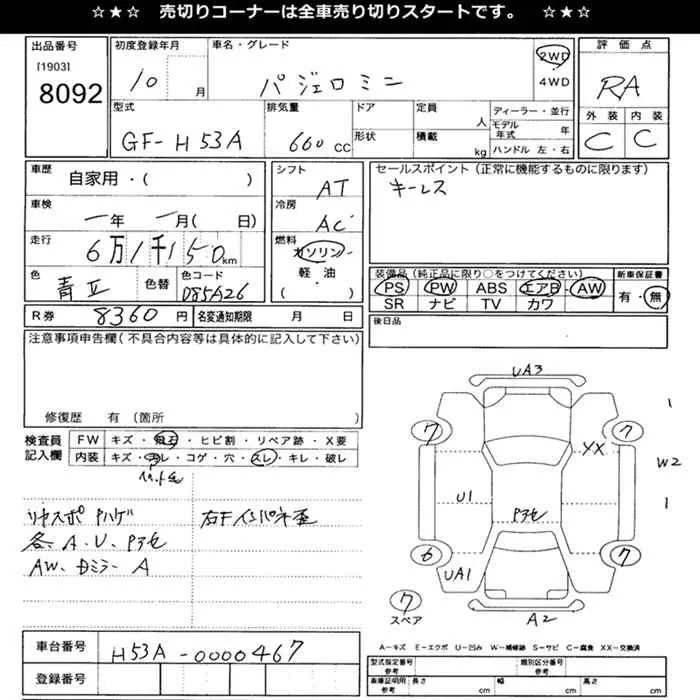 ☆★☆ 売切りコーナーは全車売り切りスタートです。 ☆★☆
出品番号
[1903]
8092
初度登録年月
10
月
車名・グレード
パジェロミニ
2WD
4WD
評価点
RA
外装 内装
C C
型式
GF-H53A
排気量
660 cc
ドア
形状
定員
人
積載
kg
ディーラー・並行
モデル年式
年
ハンドル 左・右
車歴
自家用・( )
車検
一年 一月( 日)
走行
6万1千150km
色
青
色替
色コード
D85A26
シフト
AT
冷房
AC
燃料
ガソリン・
軽・油
・( )
セールスポイント (正常に機能するものに限ります)
キーレス
装備品(純正品に限り○をつけてください)
PS PW ABS エアB AW
SR ナビ TV カワ
新車保証書
有・無
R券
8360円
名変通知期限
月 日
後日品
注意事項申告欄(不具合内容等は具体的に記入して下さい)
修復歴 有 (箇所 )
検査員記入欄
FW キズ・飛石・ヒビ割・リペア跡・X要
内装 キズ・ヨゴレ・コゲ・穴・スレ・キレ・破レ
リヤスポ Pハゲ
各、A.U.Pアセ
AW、ドミラー A
右Fインパネ歪
UA3
7
7
XX
1
W2
1
U1
Pアセ
6
7
UA1
7
スペア
A2
A―キズ E―エクボ U―凹み W―補修跡 S―サビ C―腐食 XX―交換済
車台番号
H53A-0000467
登録番号
型式指定番号
参考
類別区分番号
参考
車庫証明用
参考
長さ
cm
幅
cm
高さ
cm